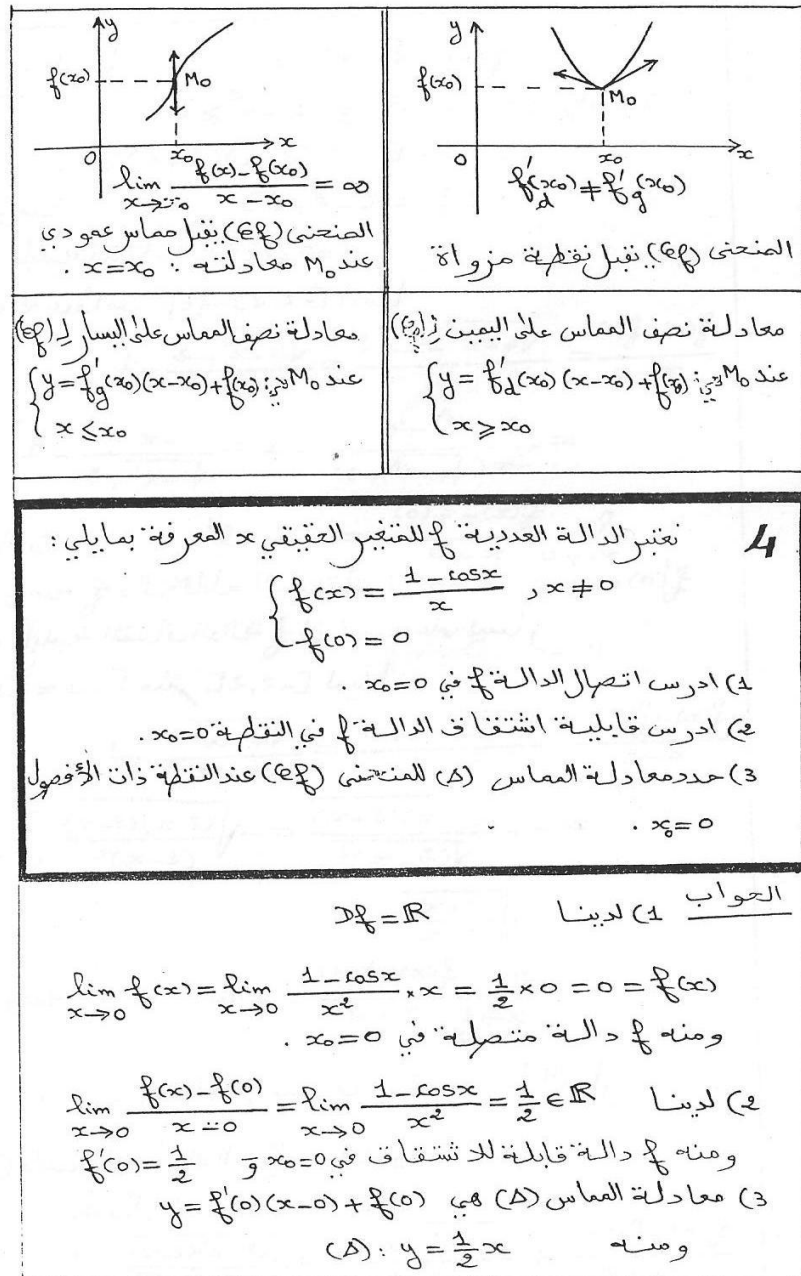 y
f(x₀)
M₀
0
x₀
x
lim_{x→x₀} (f(x)-f(x₀))/(x-x₀) = ∞
المنحنى (𝒞f) يقبل مماس عمودي
عند M₀ معادلته : x=x₀ .
y
f(x₀)
M₀
0
x₀
x
f'd(x₀) ≠ f'g(x₀)
المنحنى (𝒞f) يقبل نقطة مزواة
معادلة نصف المماس على اليمين لـ (𝒞f)
عند M₀ هي: { y = f'd(x₀)(x-x₀)+f(x₀)
x ≥ x₀
معادلة نصف المماس على اليسار لـ (𝒞f)
عند M₀ هي: { y = f'g(x₀)(x-x₀)+f(x₀)
x ≤ x₀
4 نعتبر الدالة العددية f للمتغير الحقيقي x المعرفة بمايلي :
{ f(x) = (1-cosx)/x , x ≠ 0
f(0) = 0
1) ادرس اتصال الدالة f في x₀=0 .
2) ادرس قابلية اشتقاق الدالة f في النقطة x₀=0 .
3) حدد معادلة المماس (Δ) للمنحنى (𝒞f) عند النقطة ذات الأفصول
x₀=0 .
الجواب 1) لدينا Df = ℝ
lim_{x→0} f(x) = lim_{x→0} (1-cosx)/x² × x = 1/2 × 0 = 0 = f(x)
ومنه f دالة متصلة في x₀=0 .
2) لدينا lim_{x→0} (f(x)-f(0))/(x-0) = lim_{x→0} (1-cosx)/x² = 1/2 ∈ ℝ
ومنه f دالة قابلة للاشتقاق في x₀=0 و f'(0) = 1/2
3) معادلة المماس (Δ) هي y = f'(0)(x-0) + f(0)
ومنه (Δ): y = 1/2 x